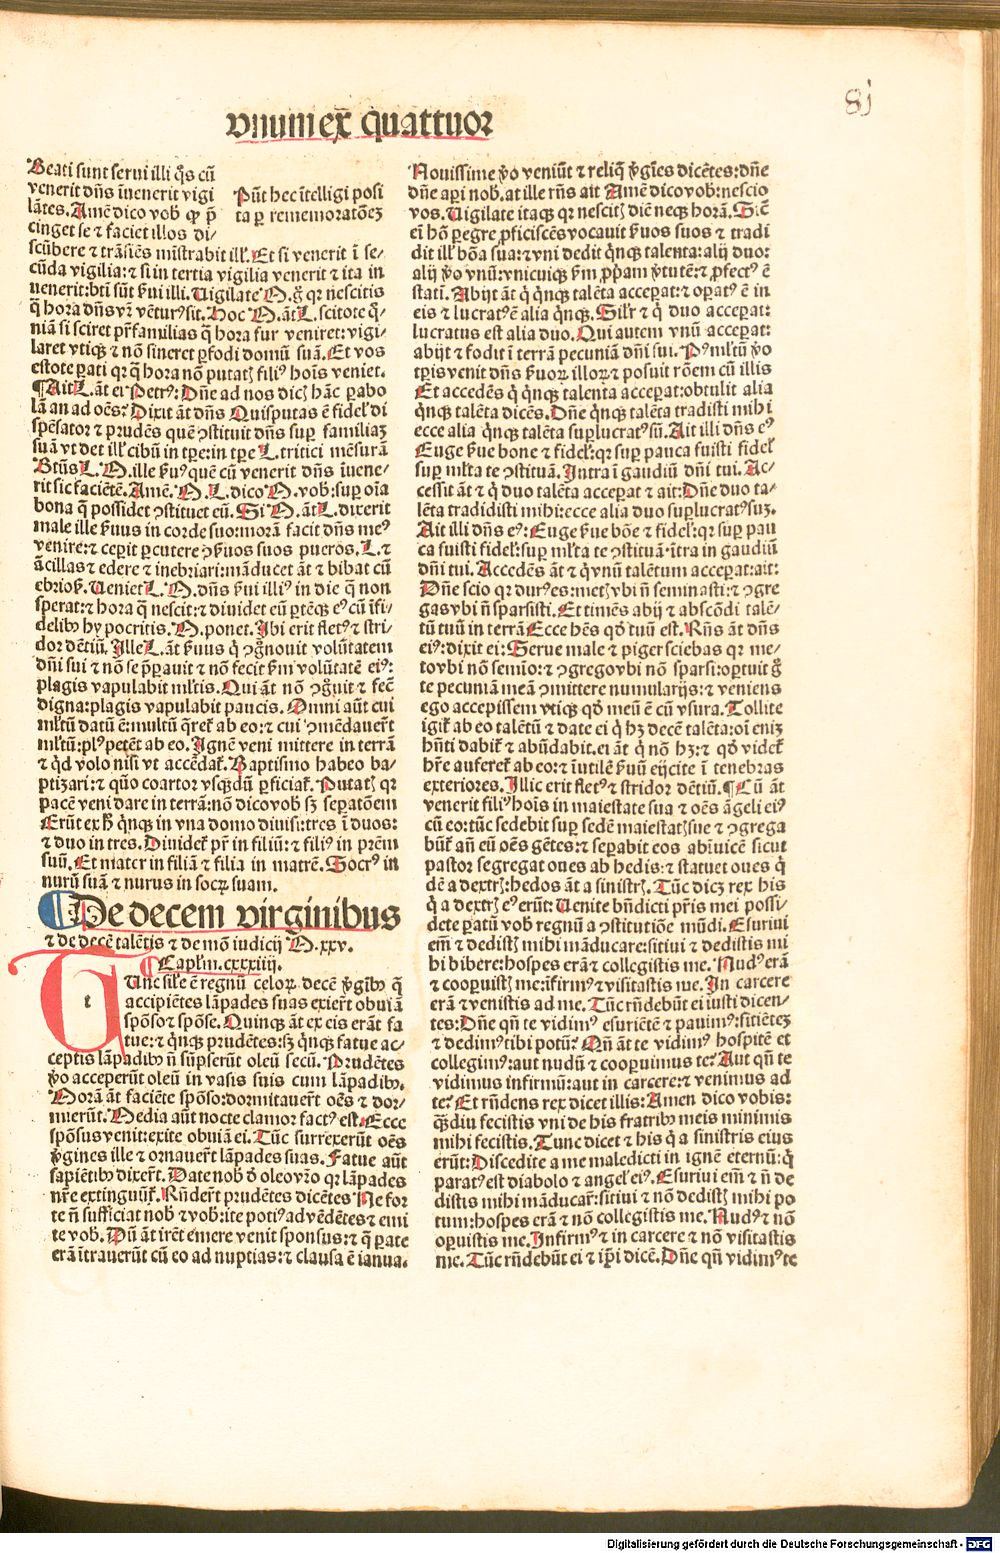 81
vnum ex̄ quattuor
Beati sunt serui illi q̄s cū
venerit dn̄s īuenerit vigi
lātes. Amē dico vob̄ qꝫ p̄
cinget se ⁊ faciet illos di⸗
Pn̄t hec ītelligi posi
ta ꝑ rememoratōeꝫ
scūbere ⁊ trāsiēs mīstrabit ill̓. Et si venerit ī se⸗
cūda vigilia: ⁊ si in tertia vigilia venerit ⁊ ita in
uenerit: bt̄i sūt s̄ui illi. Uigilate M. g̊ qꝛ nescitis
q̄ hora dn̄s vr̄ vētur⁹ sit. Hoc M. āt L. scitote q̄⸗
niā si sciret pr̄familias q̄ hora fur veniret: vigi⸗
laret vtiqꝫ ⁊ nō sineret ꝑfodi domū suā. Et vos
estote ꝑati qꝛ q̄ hora nō putatꝭ fili⁹ hoīs veniet.
¶ Ait L. āt ei Petr⁹: Dn̄e ad nos dicꝭ hāc ꝑabo
lā an ad oēs? Dixit āt dn̄s Quis putas ē fidel̓ di
spēsator ⁊ prudēs quē ꝯstituit dn̄s suꝑ familiaꝫ
suā vt det ill̓ cibū in tꝑe: in tꝑe L. tritici mēsurā
Bt̄us L. M. ille s̄u⁹ quē cū venerit dn̄s īuene⸗
rit sic faciētē. Amē. M. L. dico M. vob̄: suꝑ oīa
bona q̄ possidet ꝯstituet eū. Si M. āt L. dixerit
male ille s̄uus in corde suo: morā facit dn̄s me⁹
venire: ⁊ ceꝑit ꝑcutere ꝯs̄uos suos pueros. L. ⁊
ācillas ⁊ edere ⁊ inebriari: māducet āt ⁊ bibat cū
ebriosꝭ. Ueniet L. M. dn̄s s̄ui illi⁹ in die q̄ non
sperat: ⁊ hora q̄ nescit: ⁊ diuidet eū ꝑtēqꝫ e⁹ cū īfi⸗
delibꝫ hypocritis. M. ponet. Ibi erit flet⁹ ⁊ stri⸗
dor dētiū. Ille L. āt s̄uus q̇ ꝯgnouit volūtatem
dn̄i sui ⁊ nō se p̄ꝑauit ⁊ nō fecit s̄m volūtatē ei⁹:
plagis vapulabit ml̄tis. Qui āt nō ꝯg̊uit ⁊ fec̄
digna: plagis vapulabit paucis. Omni aūt cui
ml̄tū datū ē: multū q̄ret̓ ab eo: ⁊ cui ꝯmēdauer̄t
ml̄tū: pl⁹ petēt ab eo. Ignē veni mittere in terrā
⁊ q̇d volo nisi vt accēdat̓. Baptismo habeo ba⸗
ptizari: ⁊ quō coartor vsqꝫdū ꝑficiat̓. Putatꝭ qꝛ
pacē veni dare in terrā: nō dico vob̄ sꝫ seꝑatōem
Erūt ex h̄ q̄nqꝫ in vna domo diuisi: tres ī duos:
⁊ duo in tres. Diuidet̓ pr̄ in filiū: ⁊ fili⁹ in prēm
suū. Et mater in filiā ⁊ filia in matrē. Socr⁹ in
nurū suā ⁊ nurus in socrū suam.
¶ De decem virginibus
⁊ de decē talētis ⁊ de mō iudicij M. xxv.
¶ Capl̄m. cxxxiiij.
t Unc sil̄e ē regnū celoꝝ decē v̓gībꝫ q̄
accipiētes lāpades suas exier̄t obuiā
sponso ⁊ spōse. Quinqꝫ āt ex eis erāt fa
tue: ⁊ q̄nqꝫ prudētes: sꝫ q̄nqꝫ fatue ac⸗
ceptis lāpadibꝫ n̄ sūpserūt oleū secū. Prudētes
v̓o acceperūt oleū in vasis suis cum lāpadibꝫ.
Morā āt faciēte spōso: dormitauer̄t oēs ⁊ dor⸗
mierūt. Media aūt nocte clamor fact⁹ est. Ecce
spōsus venit: exite obuiā ei. Tūc surrexerūt oēs
v̓gines ille ⁊ ornauer̄t lāpades suas. Fatue aūt
sapiētibꝫ dixer̄t. Date nob̄ d̓ oleo vr̄o qꝛ lāpades
nr̄e extinguūt̓. Rn̄der̄t prudētes dicētes Ne for
te n̄ sufficiat nob̄ ⁊ vob̄: ite poti⁹ ad vēdētes ⁊ emi
te vob̄. Dū āt irēt emere venit sponsus: ⁊ q̄ ꝑate
erā ītrauerūt cū eo ad nuptias: ⁊ clausa ē ianua.
Nouissime v̓o veniūt ⁊ reliq̄ v̓gīes dicētes: dn̄e
dn̄e aꝑi nob̄. at ille rn̄s ait Amē dico vob̄: nescio
vos. Uigilate itaqꝫ qꝛ nescitꝭ diē neqꝫ horā. Sic̄
ei hō ꝑegre ꝓficiscēs vocauit s̄uos suos ⁊ tradi
dit ill̓ bōa sua: ⁊ vni dedit q̄nqꝫ talenta: alij duo:
alij v̓o vnū: vnicuiqꝫ s̄m ꝓpam v̓tutē: ⁊ ꝓfect⁹ ē
stati. Abijt āt q̇ q̄nqꝫ talēta acceꝑat: ⁊ oꝑat⁹ ē in
eis ⁊ lucrat⁹ ē alia q̄nqꝫ. Sil̄r ⁊ q̇ duo acceꝑat:
lucratus est alia duo. Qui autem vnū acceꝑat:
abijt ⁊ fodit ī terrā pecuniā dn̄i sui. P⁹ ml̄tū v̓o
tꝑis venit dn̄s s̄uoꝝ illoꝝ ⁊ posuit rōem cū illis
Et accedēs q̇ q̄nqꝫ talenta acceꝑat: obtulit alia
q̄nqꝫ talēta dicēs. Dn̄e q̄nqꝫ talēta tradisti mihi
ecce alia q̄nqꝫ talēta suꝑlucrat⁹ sū. Ait illi dn̄s e⁹
Euge s̄ue bone ⁊ fidel̓: qꝛ suꝑ pauca fuisti fidel̓
suꝑ ml̄ta te ꝯstituā. Intra ī gaudiū dn̄i tui. Ac⸗
cessit āt ⁊ q̇ duo talēta acceꝑat ⁊ ait: Dn̄e duo ta⸗
lēta tradidisti mihi: ecce alia duo suꝑlucrat⁹ suꝫ.
Ait illi dn̄s e⁹: Euge s̄ue bōe ⁊ fidel̓: qꝛ suꝑ pau
ca fuisti fidel̓: suꝑ ml̄ta te ꝯstituā. ītra in gaudiū
dn̄i tui. Accedēs āt ⁊ q̇ vnū talētum acceꝑat: ait:
Dn̄e scio qꝛ dur⁹ es: metꝭ vbi n̄ seminasti: ⁊ ꝯgre
gas vbi n̄ sparsisti. Et timēs abij ⁊ abscōdi talē⸗
tū tuū in terrā Ecce hēs qd̓ tuū est. Rn̄s āt dn̄s
ei⁹: dixit ei: Serue male ⁊ piger sciebas qꝛ me⸗
to vbi nō semīo: ⁊ ꝯgrego vbi nō sparsi: oꝑtuit g̊
te pecuniā meā ꝯmittere numularijs: ⁊ veniens
ego accepissem vtiqꝫ qd̓ meū ē cū vsura. Tollite
igit̓ ab eo talētū ⁊ date ei q̇ hꝫ decē talēta: oī eniꝫ
hn̄ti dabit̓ ⁊ abūdabit. ei āt q̇ nō hꝫ: ⁊ qd̓ videt̓
hr̄e auferet̓ ab eo: ⁊ īutilē s̄uū eijcite ī tenebras
exteriores. Illic erit flet⁹ ⁊ stridor dētiū. ¶ Cū āt
venerit fili⁹ hoīs in maiestate sua ⁊ oēs āgeli ei⁹
cū eo: tūc sedebit suꝑ sedē maiestatꝭ sue ⁊ ꝯgrega
būt̓ an̄ eū oēs gētes: ⁊ seꝑabit eos abīuicē sicut
pastor segregat oues ab hedis: ⁊ statuet oues q̇
dē a dextrꝭ: hedos āt a sinistrꝭ. Tūc dicꝫ rex his
q̇ a dextrꝭ e⁹ erūt: Uenite bn̄dicti pr̄is mei possi⸗
dete ꝑatū vob̄ regnū a ꝯstitutiōe mūdi. Esuriui
em̄ ⁊ dedistꝭ mihi māducare: sitiui ⁊ dedistis mi
hi bibere: hospes erā ⁊ collegistis me. Nud⁹ erā
⁊ cooꝑuistꝭ me: īfirm⁹ ⁊ visitastis me. In carcere
erā ⁊ venistis ad me. Tūc rn̄debūt ei iusti dicen⸗
tes: Dn̄e qn̄ te vidim⁹ esuriētē ⁊ pauim⁹: sitiēteꝫ
⁊ dedim⁹ tibi potū? Qn̄ āt te vidim⁹ hospitē et
collegim⁹: aut nudū ⁊ cooꝑuimus te? Aut qn̄ te
vidimus infirmū: aut in carcere: ⁊ venimus ad
te? Et rn̄dens rex dicet illis: Amen dico vobis:
qꝫdiu fecistis vni de his fratribꝫ meis minimis
mihi fecistis. Tunc dicet ⁊ his q̇ a sinistris eius
erūt: Discedite a me maledicti in ignē eternū: q̇
parat⁹ est diabolo ⁊ angel̓ ei⁹. Esuriui em̄ ⁊ n̄ de
distis mihi māducar̄: sitiui ⁊ nō dedistꝭ mihi po
tum: hospes erā ⁊ nō collegistis me. Nud⁹ ⁊ nō
oꝑuistis me. Infirm⁹ ⁊ in carcere ⁊ nō visitastis
me. Tūc rn̄debūt ei ⁊ ip̄i dicē. Dn̄e qn̄ vidim⁹ te
Digitalisierung gefördert durch die Deutsche Forschungsgemeinschaft - DFG